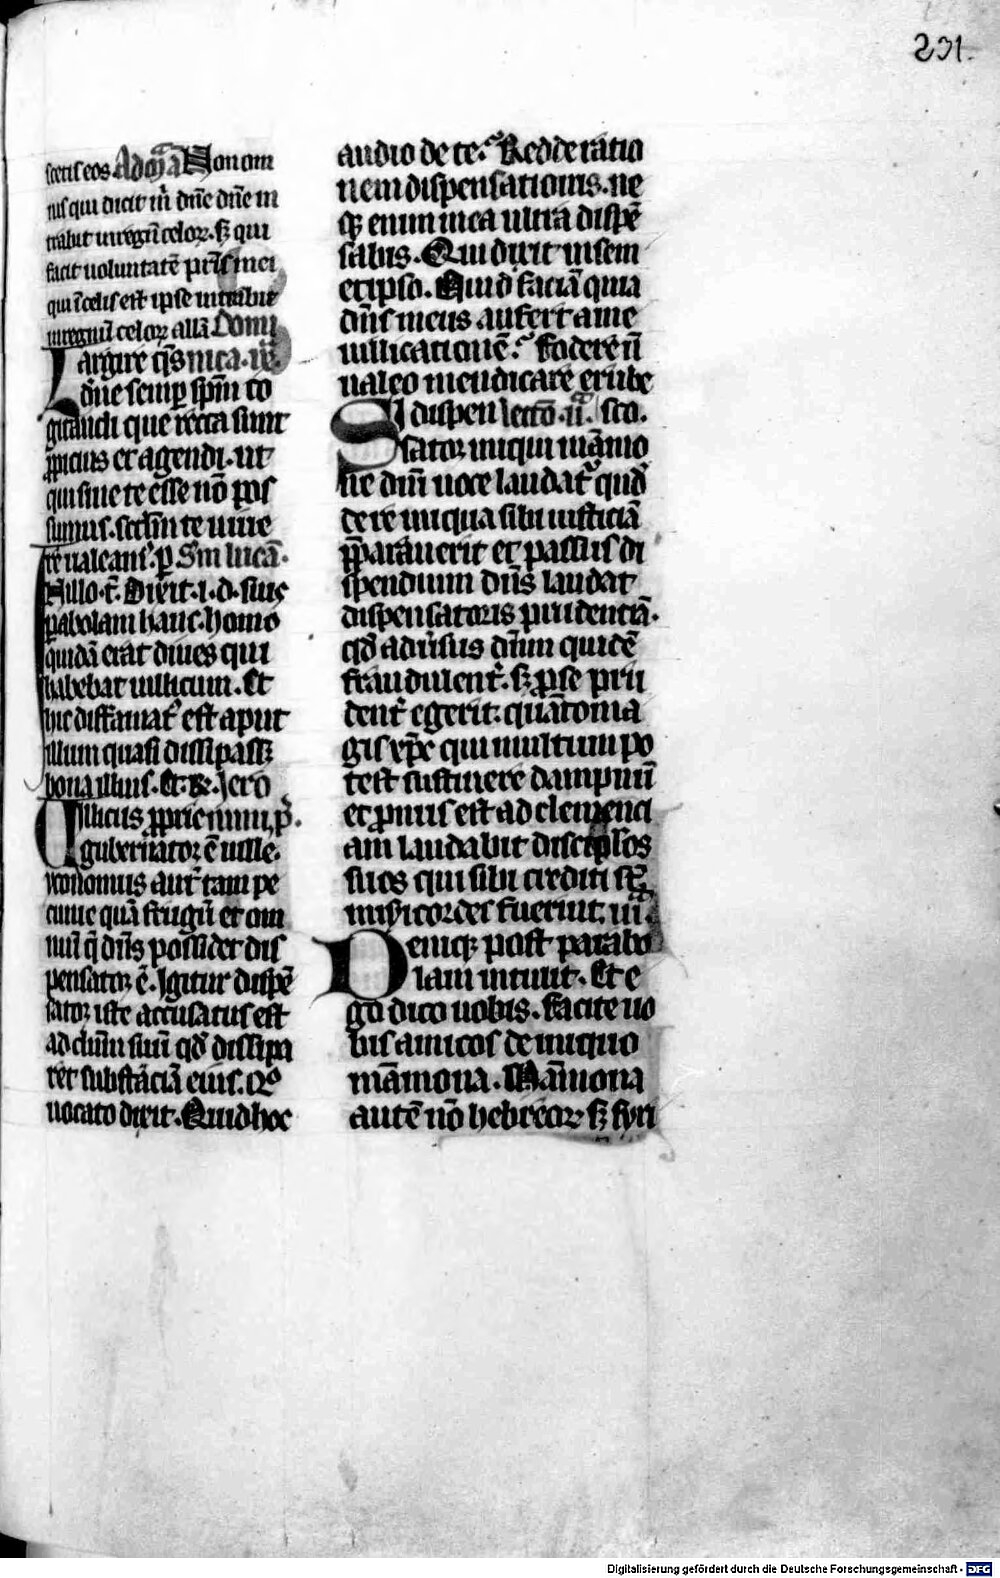 231.
scetis eos Ad mā Non om
nis qui dicit m̄ dn̄e dn̄e in
trabit in regn̄ celoꝝ. sꝫ qui
facit uoluntatē pr̄is mei
qui ī celis est ipse intrabit
in regnū celoꝝ all'a Domi
Largire qs̄ nica
dn̄e semꝑ spm̄ co
gitandi que recta sunt
ꝓpicius et agendi. ut
qui sine te esse nō pos
sumus. scdm̄ te uiue
re ualeam᷒. ꝑ Sm̄ lucā.
Illo. t̄. Dixit. i. d. suis
ꝑabolam hanc. homo
quidā erat diues qui
habebat uillicum. Et
hic diffamat᷒ est aput
illum quasi dissipassꝫ
bona illius. Et. R. Jero
Uillicus ꝓprie
gubernator ē uille.
yconomus aut̄ tam pe
cunie quā frugū et om
niū q̄ dn̄s possidet dis
pensator ē. Igitur dispē
sator iste accusatus est
ad dn̄m suū qd̄ dissipa
ret substāciā eius. Quo
uocato dixit. Quid hoc
audio de te? Redde ratio
nem dispensationis. ne
qꝫ enim mea ultra dispē
sabis. Qui dixit in sem
etipso. Quid faciā quia
dn̄s meus aufert a me
uillicationē? Fodere n̄
ualeo mendicare erube
Si dispen lectō. ii. sco.
sator iniqui māmo
ne dn̄i uoce laudat᷒ quod
de re iniqua sibi iusticiā
p̄parauerit et passus di
spendium dn̄s laudat
dispensatoris prudentiā.
qd̄ aduersus dn̄m quidē
fraudulent᷒. sꝫ ꝓ se pru
dent᷒ egerit. quāto ma
gis xp̄c qui nullum po
test sustinere dampnū
et ꝓnus est ad clemenci
am laudabit discipulos
suos qui sibi credituri st̄
misericordes fuerint. iii.
Denique post parabo
lam intulit. Et e
go dico uobis. facite uo
bis amicos de iniquo
māmona. Māmona
autē nō hebreoꝝ sꝫ syri
Digitalisierung gefördert durch die Deutsche Forschungsgemeinschaft - DFG